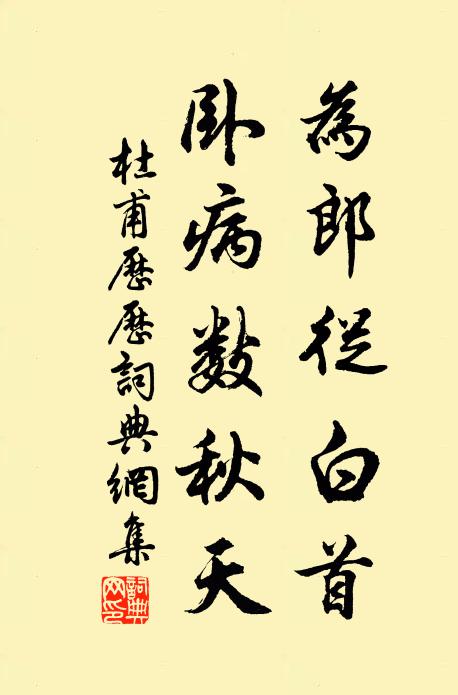 為郎從白首
卧病數秋天
杜甫歷歷詞典網集
詞典網印